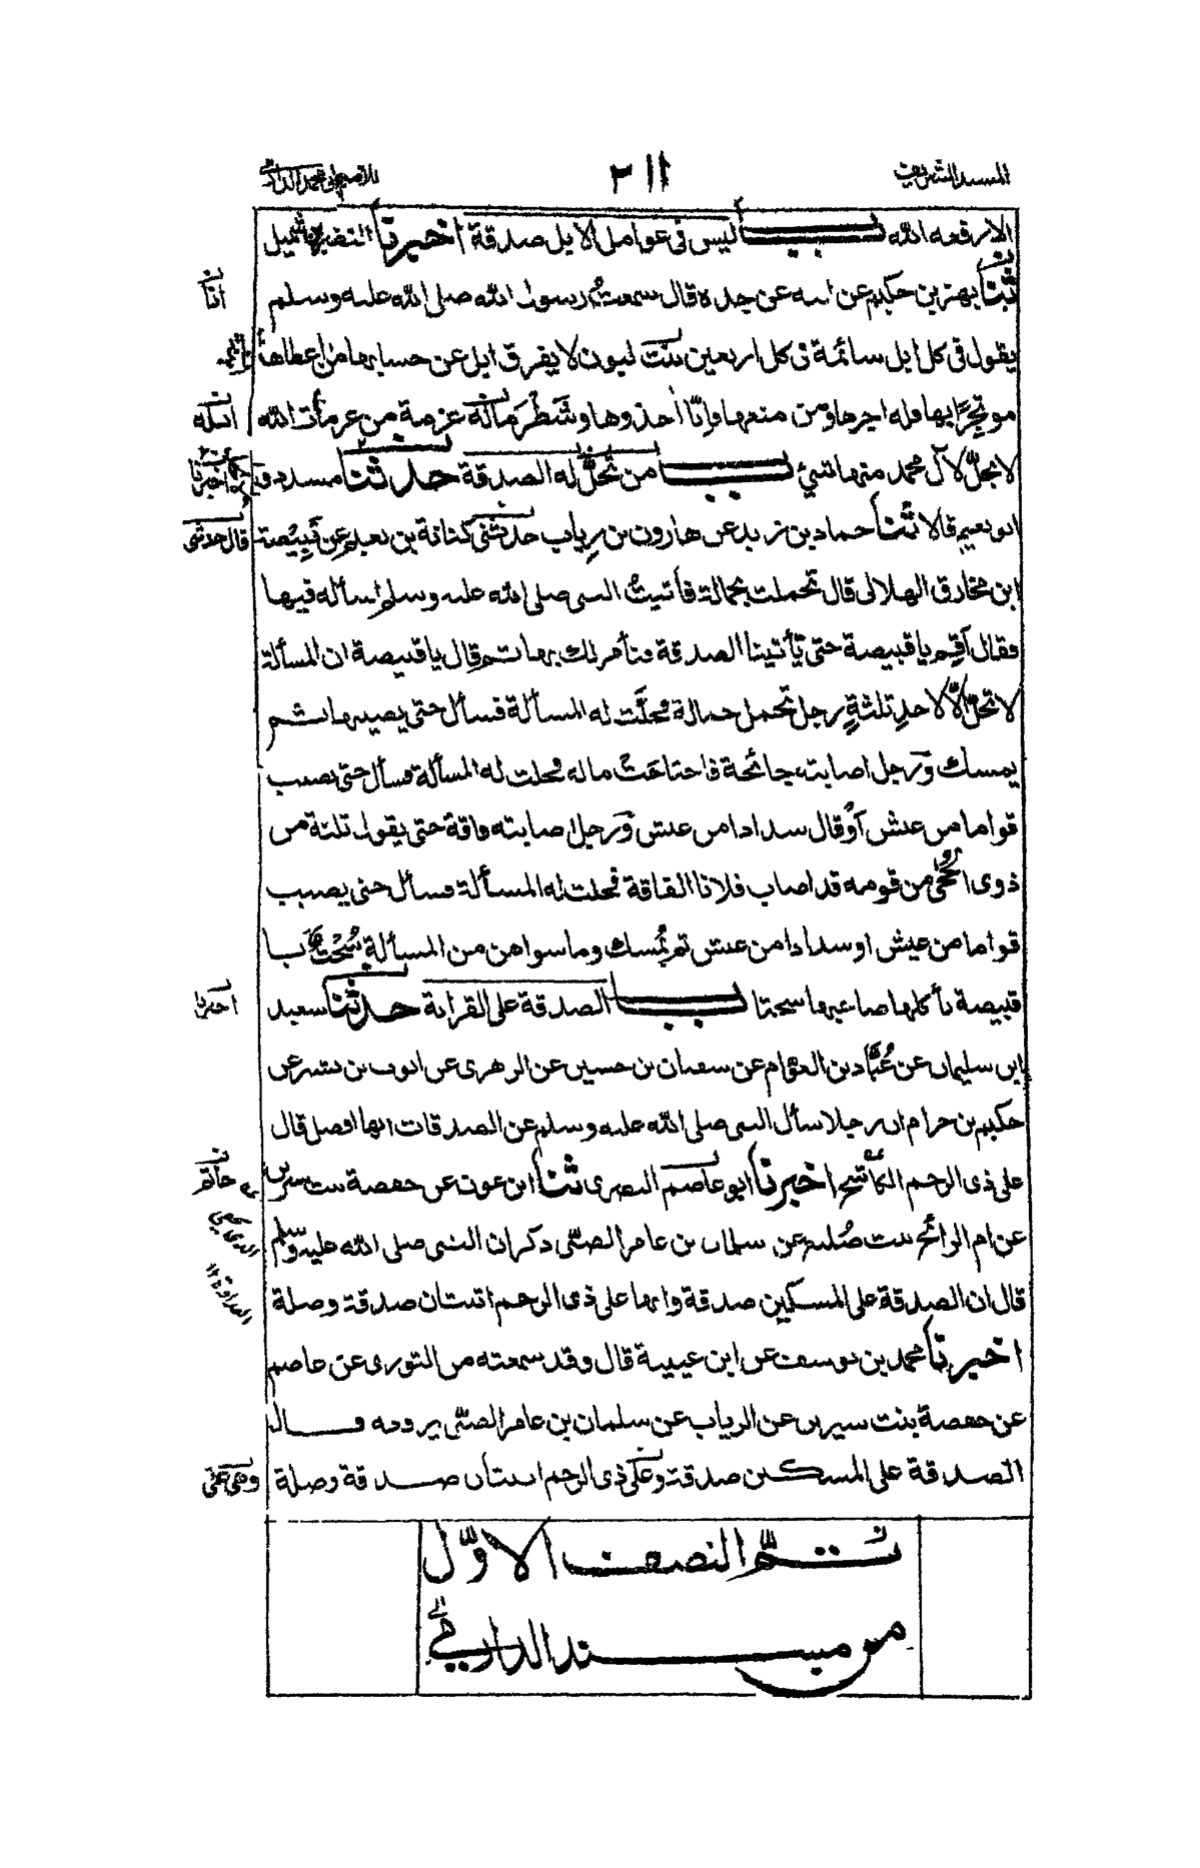 المسند الشريف
٢١١
للامام محمد الدارمي
الا رفعه الله باب ليس فى عوامل الابل صدقة اخبرنا النضر بن شميل
ثنا بهز بن حكيم عن ابيه عن جده قال سمعت رسول الله صلى الله عليه وسلم
يقول فى كل ابل سائمة فى كل اربعين بنت لبون لا يفرق ابل عن حسابها من اعطاها
موتجرا بها فله اجرها ومن منعها فانا آخذوها وشطر ماله عزمة من عزمات الله
لا يحل لآل محمد منها شئ باب من تحل له الصدقة حدثنا مسدد و
ابو نعيم قالا ثنا حماد بن زيد عن هارون بن رياب حدثنى كنانة بن نعيم عن قبيصة
ابن مخارق الهلالى قال تحملت بحمالة فأتيت النبى صلى الله عليه وسلم اسأله فيها
فقال أقم يا قبيصة حتى تأتينا الصدقة فنأمر لك بها ثم قال يا قبيصة ان المسألة
لا تحل الا لاحد ثلثة رجل تحمل حمالة فحلت له المسألة فسأل حتى يصيبها ثم
يمسك ورجل اصابته جائحة فاجتاحت ماله فحلت له المسألة فسأل حتى يصيب
قواما من عيش او قال سدادا من عيش ورجل اصابته فاقة حتى يقول ثلثة من
ذوى الحجى من قومه قد اصاب فلانا الفاقة فحلت له المسألة فسأل حتى يصيب
قواما من عيش او سدادا من عيش ثم يمسك وما سواهن من المسألة سحت يا
قبيصة يأكلها صاحبها سحتا باب الصدقة على القرابة حدثنا سعيد
ابن سليمان عن عباد بن العوام عن سفيان بن حسين عن الزهرى عن ايوب بن بشر عن
حكيم بن حزام ان رجلا سأل النبى صلى الله عليه وسلم عن الصدقات ايها افضل قال
على ذى الرحم الكاشح اخبرنا ابو عاصم البصرى ثنا ابن عون عن حفصة بنت سيرين
عن ام الرائح بنت صليع عن سلمان بن عامر الضبى ذكر ان النبى صلى الله عليه وسلم
قال ان الصدقة على المسكين صدقة وانها على ذى الرحم اثنتان صدقة وصلة
اخبرنا محمد بن يوسف عن ابن عيينة قال وقد سمعته من الثورى عن عاصم
عن حفصة بنت سيرين عن الرباب عن سلمان بن عامر الضبى يرفعه قال
الصدقة على المسكين صدقة وعلى ذى الرحم اثنتان صدقة وصلة
انا
اخبرنا
قال حدثنى
اخبرنا
وهى على
تم النصف الاول
من مسند الدارمي